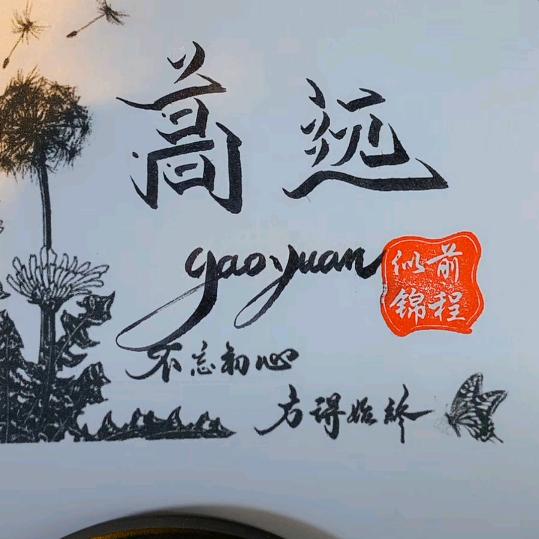 高远
gaoyuan
前程
似锦
不忘初心
方得始终